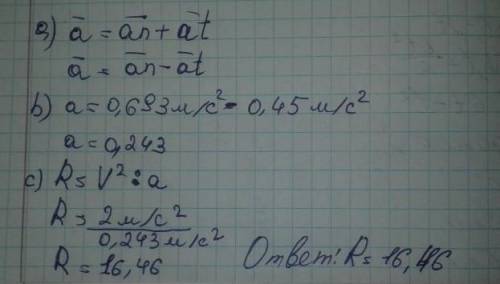 a) a̅ = a̅n + a̅t
a̅ = a̅n - a̅t
b) a = 0,693 м/с² - 0,45 м/с²
a = 0,243
c) R = V² : a
R = 2 м/с² / 0,243 м/с²
R = 16,46 Ответ: R = 16,46